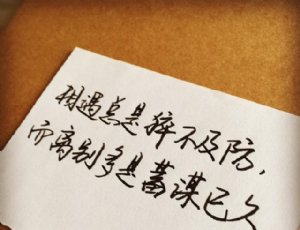 相遇总是猝不及防，
而离别多是蓄谋已久